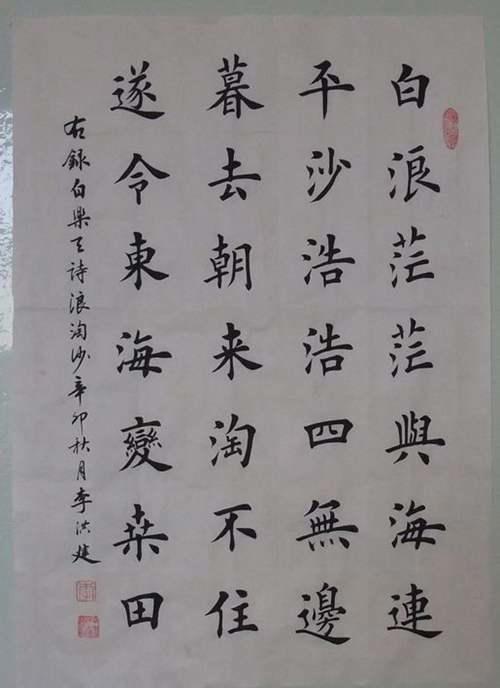 白浪茫茫與海連
平沙浩浩四無邊
暮去朝来淘不住
遂令東海變桒田
右録白樂天詩浪淘沙辛卯秋月李洪建